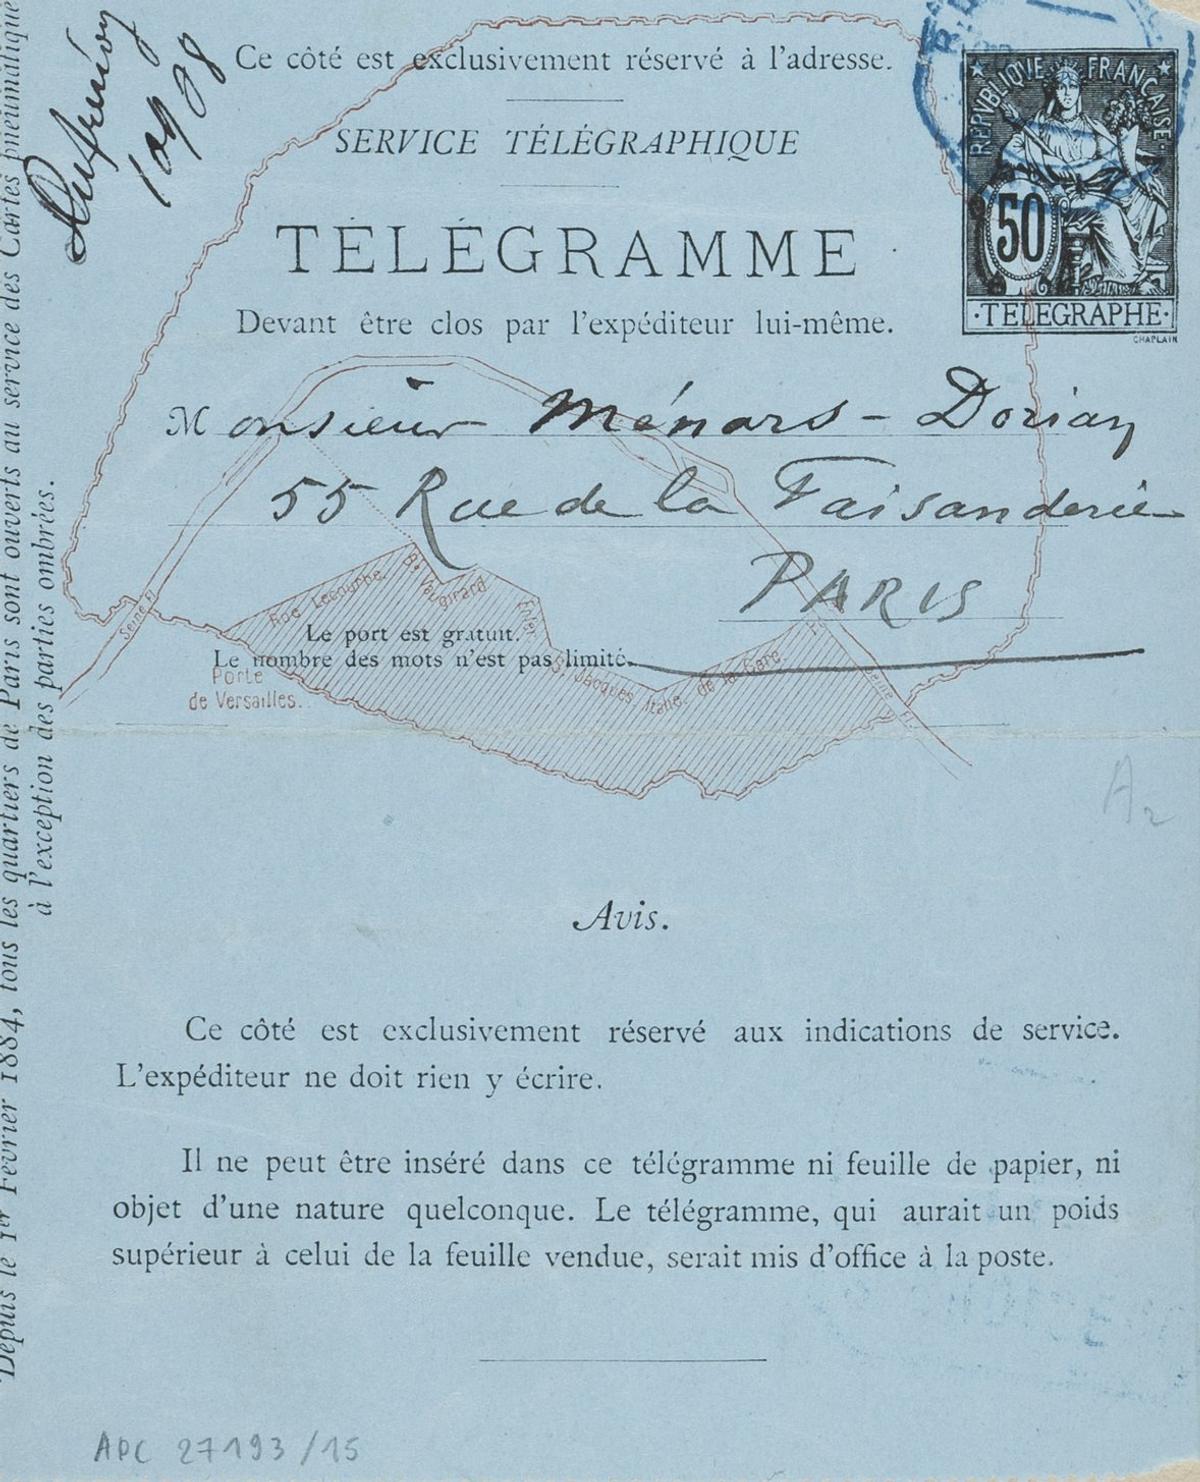 Ce côté est exclusivement réservé à l'adresse.
SERVICE TÉLÉGRAPHIQUE
TÉLÉGRAMME
Devant être clos par l'expéditeur lui-même.
REPUBLIQUE FRANÇAISE
50
·TELEGRAPHE·
CHAPLAIN
Monsieur Ménars-Dorian
55 Rue de la Faisanderie
PARIS
Rue Lecourbe.
Bd Vaugirard
Le port est gratuit.
Le nombre des mots n'est pas limité.
Porte
de Versailles.
Seine Fl.
St Jacques, Italie, de la Gare.
Seine Fl.
A2
Avis.
Ce côté est exclusivement réservé aux indications de service.
L'expéditeur ne doit rien y écrire.
Il ne peut être inséré dans ce télégramme ni feuille de papier, ni
objet d'une nature quelconque. Le télégramme, qui aurait un poids
supérieur à celui de la feuille vendue, serait mis d'office à la poste.
APC 27193/15
Depuis le 1er Février 1884, tous les quartiers de Paris sont ouverts au service des Cartes pneumatique
à l'exception des parties ombrées.